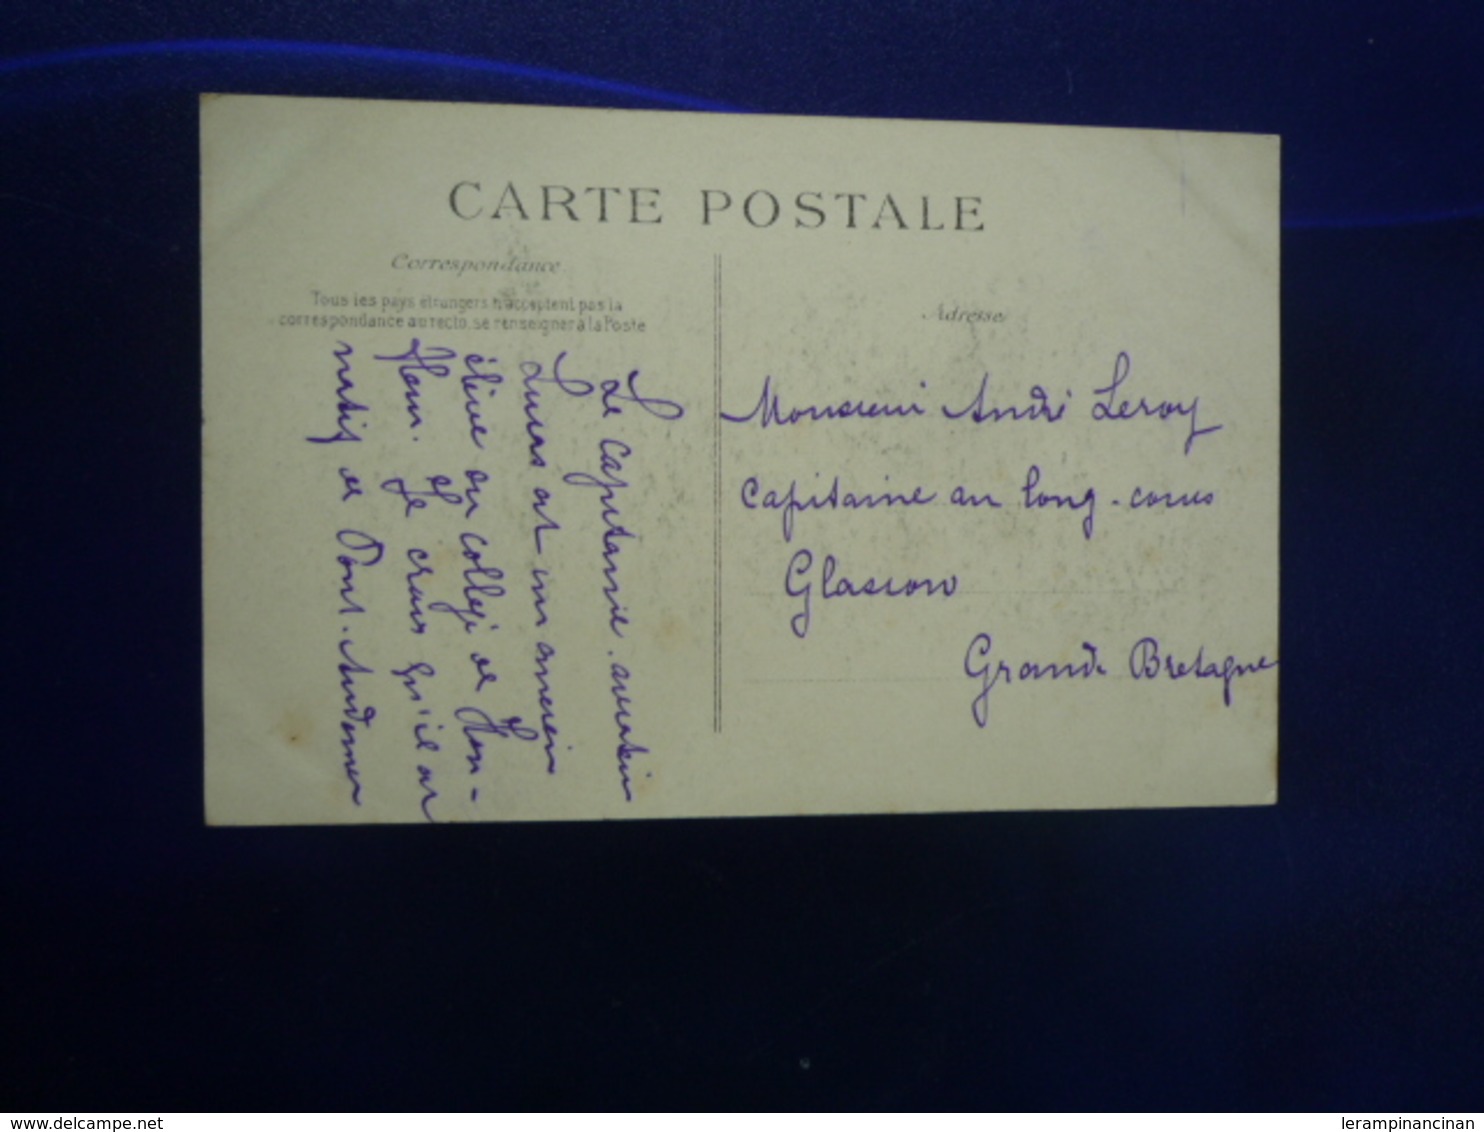 CARTE POSTALE
Correspondance
Tous les pays étrangers n'acceptent pas la
correspondance au recto, se renseigner à la Poste
Adresse
Le Capitaine aviateur
est un ancien
élève du collège de Hon-
fleur. Je crois qu'il est
natif de Pont-Audemer
Monsieur André Leroy
Capitaine au long-cours
Glascow
Grande Bretagne
www.delcampe.net
lerampinancinan